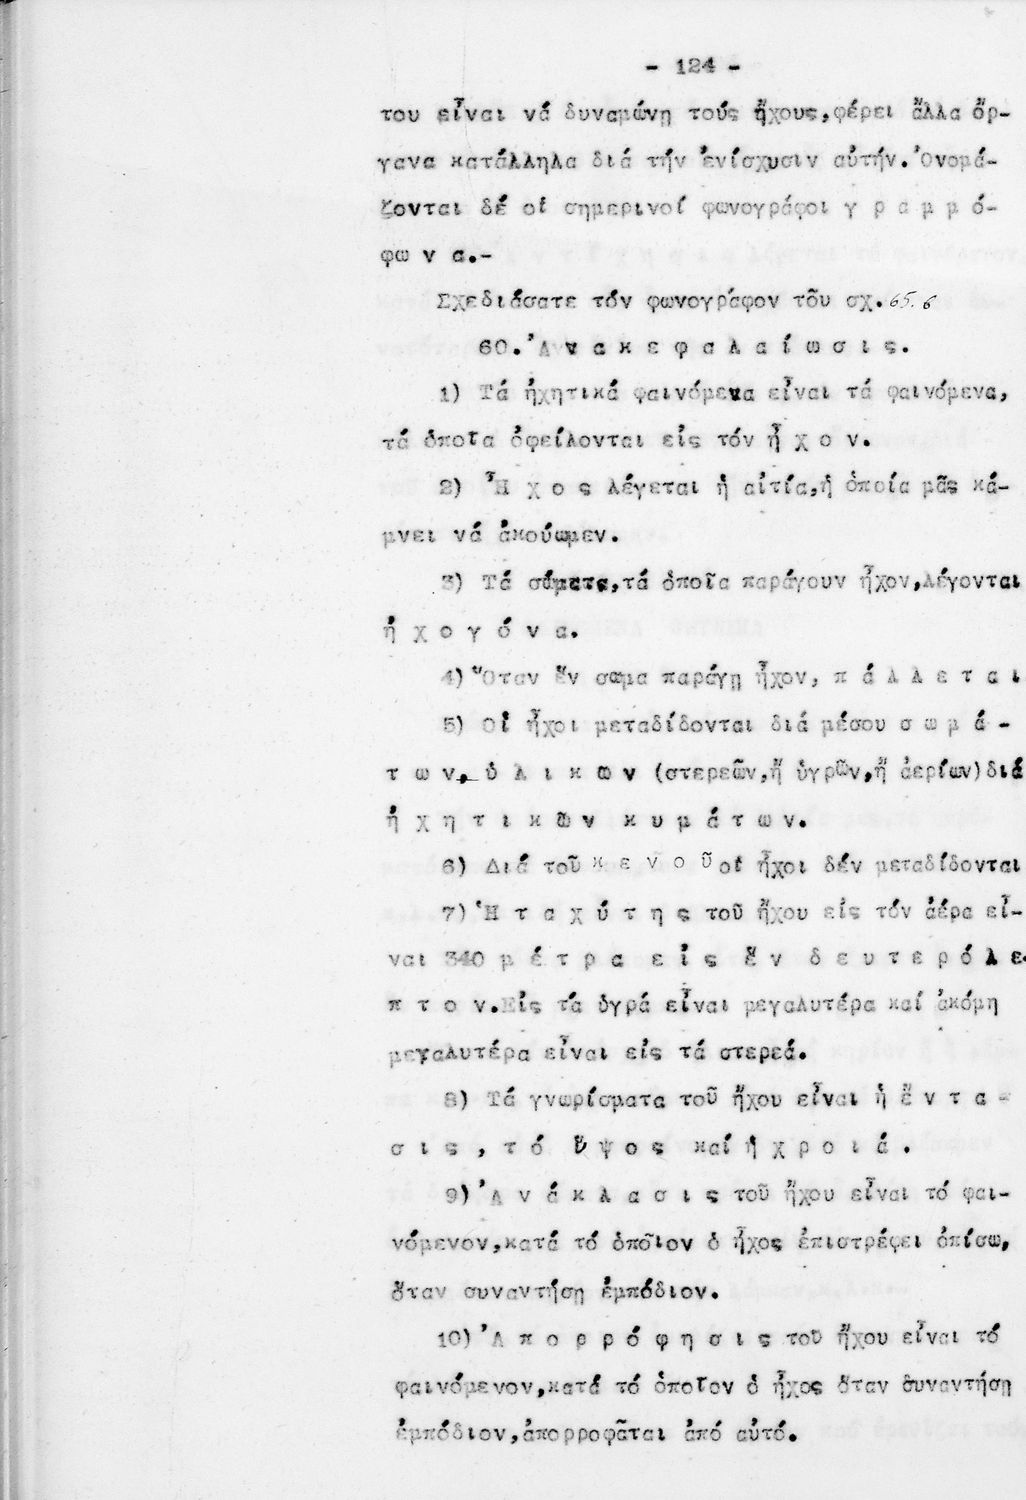 - 124 -
του εἶναι νά δυναμώνῃ τούς ἤχους,φέρει ἄλλα ὄρ-
γανα κατάλληλα διά τήν ἐνίσχυσιν αὐτήν.Ὀνομά-
ζονται δέ οἱ σημερινοί φωνογράφοι γ ρ α μ μ ό-
φω ν α.-
Σχεδιάσατε τόν φωνογράφον τοῦ σχ.65.6
60.Ἀ ν α κ ε φ α λ α ί ω σ ι ς.
1) Τά ἠχητικά φαινόμενα εἶναι τά φαινόμενα,
τά ὁποῖα ὀφείλονται εἰς τόν ἦ χ ο ν.
2) Ἦ χ ο ς λέγεται ἡ αἰτία,ἡ ὁποία μᾶς κά-
μνει νά ἀκούωμεν.
3) Τά σώματα,τά ὁποῖα παράγουν ἦχον,λέγονται
ἠ χ ο γ ό ν α.
4) Ὅταν ἕν σῶμα παράγῃ ἦχον, π ά λ λ ε τ α ι
5) Οἱ ἦχοι μεταδίδονται διά μέσου σ ω μ ά -
τ ω ν ὑ λ ι κ ῶ ν (στερεῶν,ἤ ὑγρῶν,ἤ ἀερίων)διά
ἠ χ η τ ι κ ῶ ν κ υ μ ά τ ω ν.
6) Διά τοῦ κ ε ν ο ῦ οἱ ἦχοι δέν μεταδίδονται
7) Ἡ τ α χ ύ τ η ς τοῦ ἤχου εἰς τόν ἀέρα εἶ-
ναι 340 μ έ τ ρ α ε ἰ ς ἕ ν δ ε υ τ ε ρ ό λ ε-
π τ ο ν.Εἰς τά ὑγρά εἶναι μεγαλυτέρα καί ἀκόμη
μεγαλυτέρα εἶναι εἰς τά στερεά.
8) Τά γνωρίσματα τοῦ ἤχου εἶναι ἡ ἔ ν τ α -
σ ι ς , τ ό ὕ ψ ο ς καί ἡ χ ρ ο ι ά .
9) Ἀ ν ά κ λ α σ ι ς τοῦ ἤχου εἶναι τό φαι-
νόμενον,κατά τό ὁποῖον ὁ ἦχος ἐπιστρέφει ὀπίσω,
ὅταν συναντήσῃ ἐμπόδιον.
10) Ἀ π ο ρ ρ ό φ η σ ι ς τοῦ ἤχου εἶναι τό
φαινόμενον,κατά τό ὁποῖον ὁ ἦχος ὅταν συναντήσῃ
ἐμπόδιον,ἀπορροφᾶται ἀπό αὐτό.